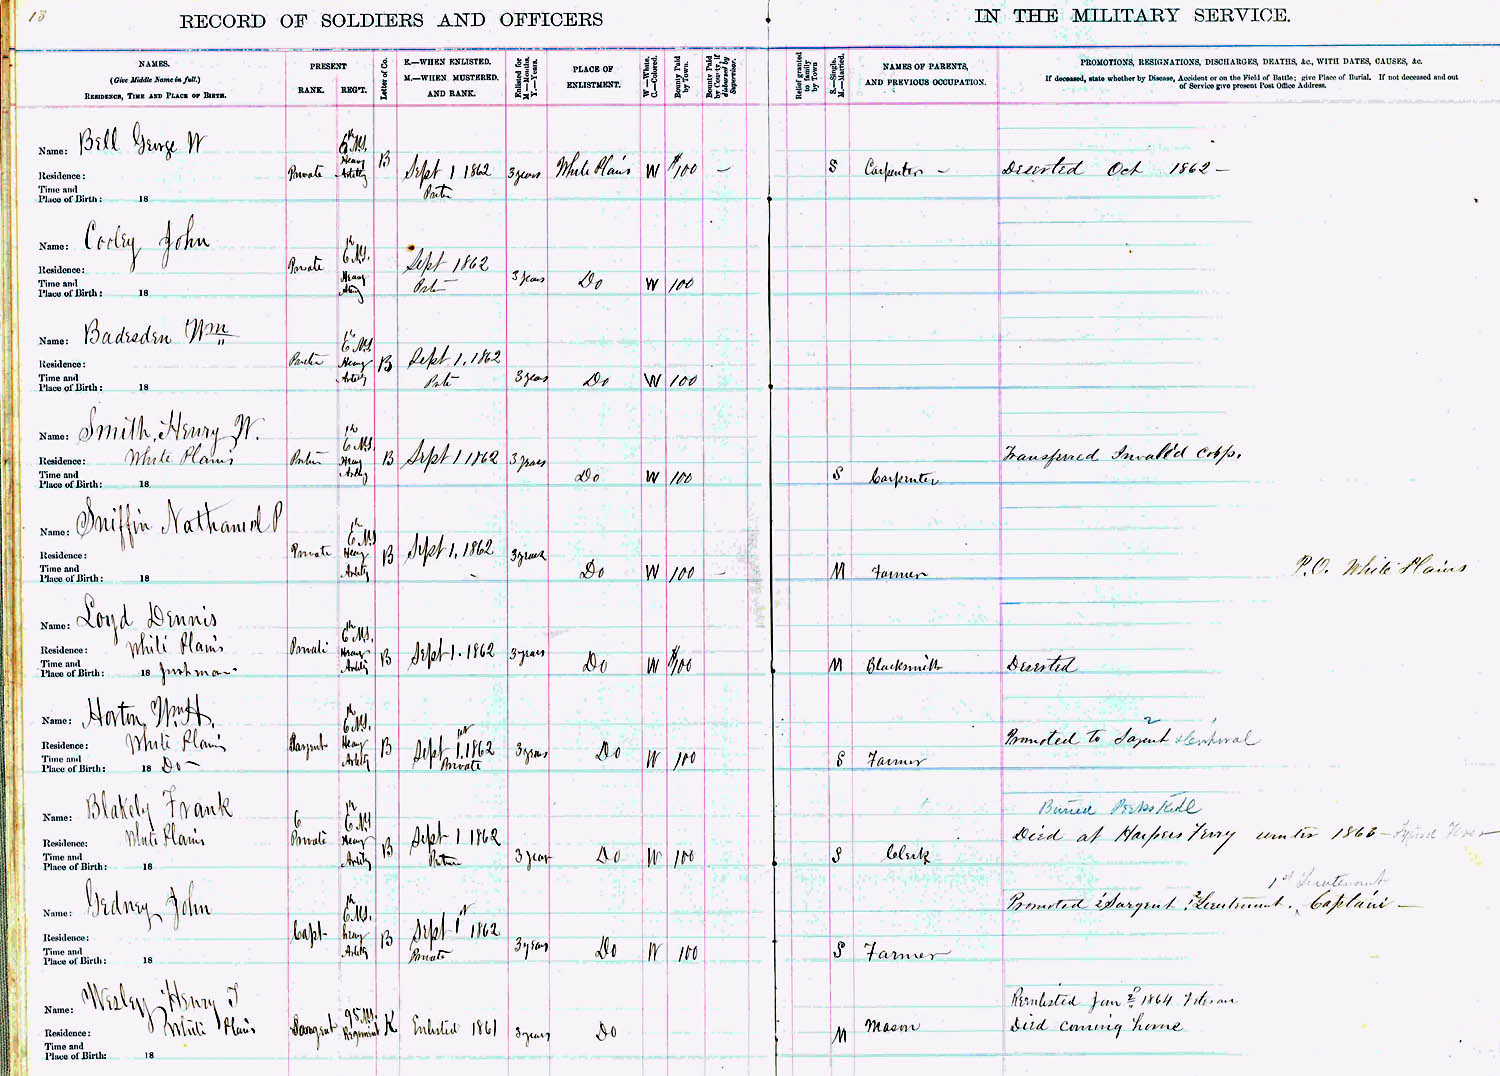 13
RECORD OF SOLDIERS AND OFFICERS
IN THE MILITARY SERVICE.
NAMES.
(Give Middle Name in full.)
RESIDENCE, TIME AND PLACE OF BIRTH.
PRESENT
RANK.
REG'T.
Letter of Co.
E.—WHEN ENLISTED.
M.—WHEN MUSTERED.
AND RANK.
Enlisted for
M.—Months.
Y.—Years.
PLACE OF
ENLISTMENT.
W.—White.
C.—Colored.
Bounty Paid
by Town.
Bounty Paid
by County, if
disbursed by
Supervisor.
Relief granted
to family
by Town
S.—Single.
M.—Married.
NAMES OF PARENTS,
AND PREVIOUS OCCUPATION.
PROMOTIONS, RESIGNATIONS, DISCHARGES, DEATHS, &c., WITH DATES, CAUSES, &c.
If deceased, state whether by Disease, Accident or on the Field of Battle; give Place of Burial. If not deceased and out
of Service give present Post Office Address.
Name: Bell George W
Residence:
Time and
Place of Birth: 18
Private
6th N.Y.
Heavy
Artilly
B
Sept 1 1862
3 years
White Plains
W
$100
—
S
Carpenter —
Deserted Oct 1862 —
Name: Cooley John
Residence:
Time and
Place of Birth: 18
Private
6th N.Y.
Heavy
Sept 1862
3 years
Do
W
100
Name: Badesden Wm
Residence:
Time and
Place of Birth: 18
6th N.Y.
Heavy
Artilly
B
Sept 1, 1862
3 years
Do
W
100
Name: Smith, Henry W.
Residence: White Plains
Time and
Place of Birth: 18
6th N.Y.
Heavy
Artilly
B
Sept 1 1862
3 years
Do
W
100
S
Carpenter
Transferred Invalid Corps.
Name: Sniffin Nathaniel P
Residence:
Time and
Place of Birth: 18
Private
6th N.Y.
Heavy
Artilly
B
Sept 1, 1862
3 years
Do
W
100
—
M
Farmer
P.O. White Plains
Name: Loyd Dennis
Residence: White Plains
Time and
Place of Birth: 18 Irishman
Private
6th N.Y.
Heavy
Artilly
B
Sept 1. 1862
3 years
Do
W
$100
M
Blacksmith
Deserted
Name: Horton, Wm H.
Residence: White Plains
Time and
Place of Birth: 18 Do —
Sargent
6th N.Y.
Heavy
Artilly
B
Sept 1st, 1862
Private
3 years
Do
W
100
S
Farmer
Promoted to Sargent & Corporal
Name: Blakely Frank
Residence: White Plains
Time and
Place of Birth: 18
Private
6th N.Y.
Heavy
Artilly
B
Sept 1 1862
3 year
Do
W
100
S
Clerk
Buried Peekskill
Died at Harpers Ferry winter 1863 — Typhoid Fever
Name: Gedney John
Residence:
Time and
Place of Birth: 18
Capt
6th N.Y.
Heavy
Artilly
B
Sept 1st 1862
Private
3 years
Do
W
100
S
Farmer
1st Lieutenant
Promoted Sargent, 2 Lieutenant, Captain —
Name: Wesley Henry T
Residence: White Plains
Time and
Place of Birth: 18
Sargent
95 N.Y.
Regiment
K
Enlisted 1861
3 years
Do
M
Mason
Reenlisted Jan 2 1864
Died coming home